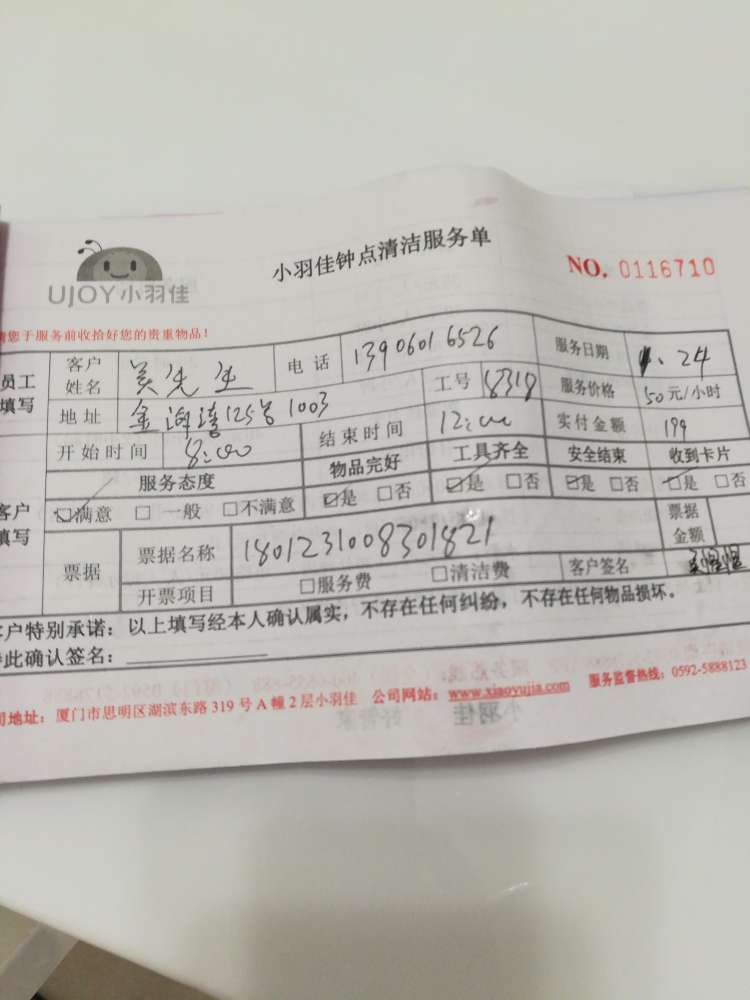 小羽佳钟点清洁服务单
NO. 0116710
UJOY小羽佳
请您于服务前收拾好您的贵重物品！
员工填写 客户姓名 吴先生 电话 13906016526 服务日期 1. 24
地址 金海湾125号1003 工号 8318 服务价格 50元/小时
开始时间 8:00 结束时间 12:00 实付金额 199
客户填写 服务态度 物品完好 工具齐全 安全结束 收到卡片
☑满意 □一般 □不满意 ☑是 □否 ☑是 □否 ☑是 □否 ☑是 □否
票据 票据名称 1801231008301821 票据金额
开票项目 □服务费 □清洁费 客户签名
客户特别承诺：以上填写经本人确认属实，不存在任何纠纷，不存在任何物品损坏。
特此确认签名：
公司地址：厦门市思明区湖滨东路319号A幢2层小羽佳 公司网站：www.xiaoyujia.com 服务监督热线：0592-5888123